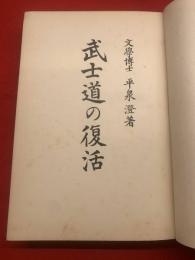 文學博士 平泉澄著
武士道の復活